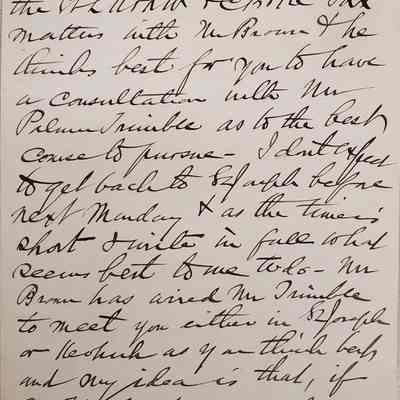 the
matters with Mr Brown & he
thinks best for you to have
a consultation with Mr
Palmer Trimble as to the best
course to pursue - I dont expect
to get back to St Joseph before
next Monday & as the time is
short I write in full what
seems best to me to do - Mr
Brown has wired Mr Trimble
to meet you either in St Joseph
or Keokuk as you think best
and my idea is that, if